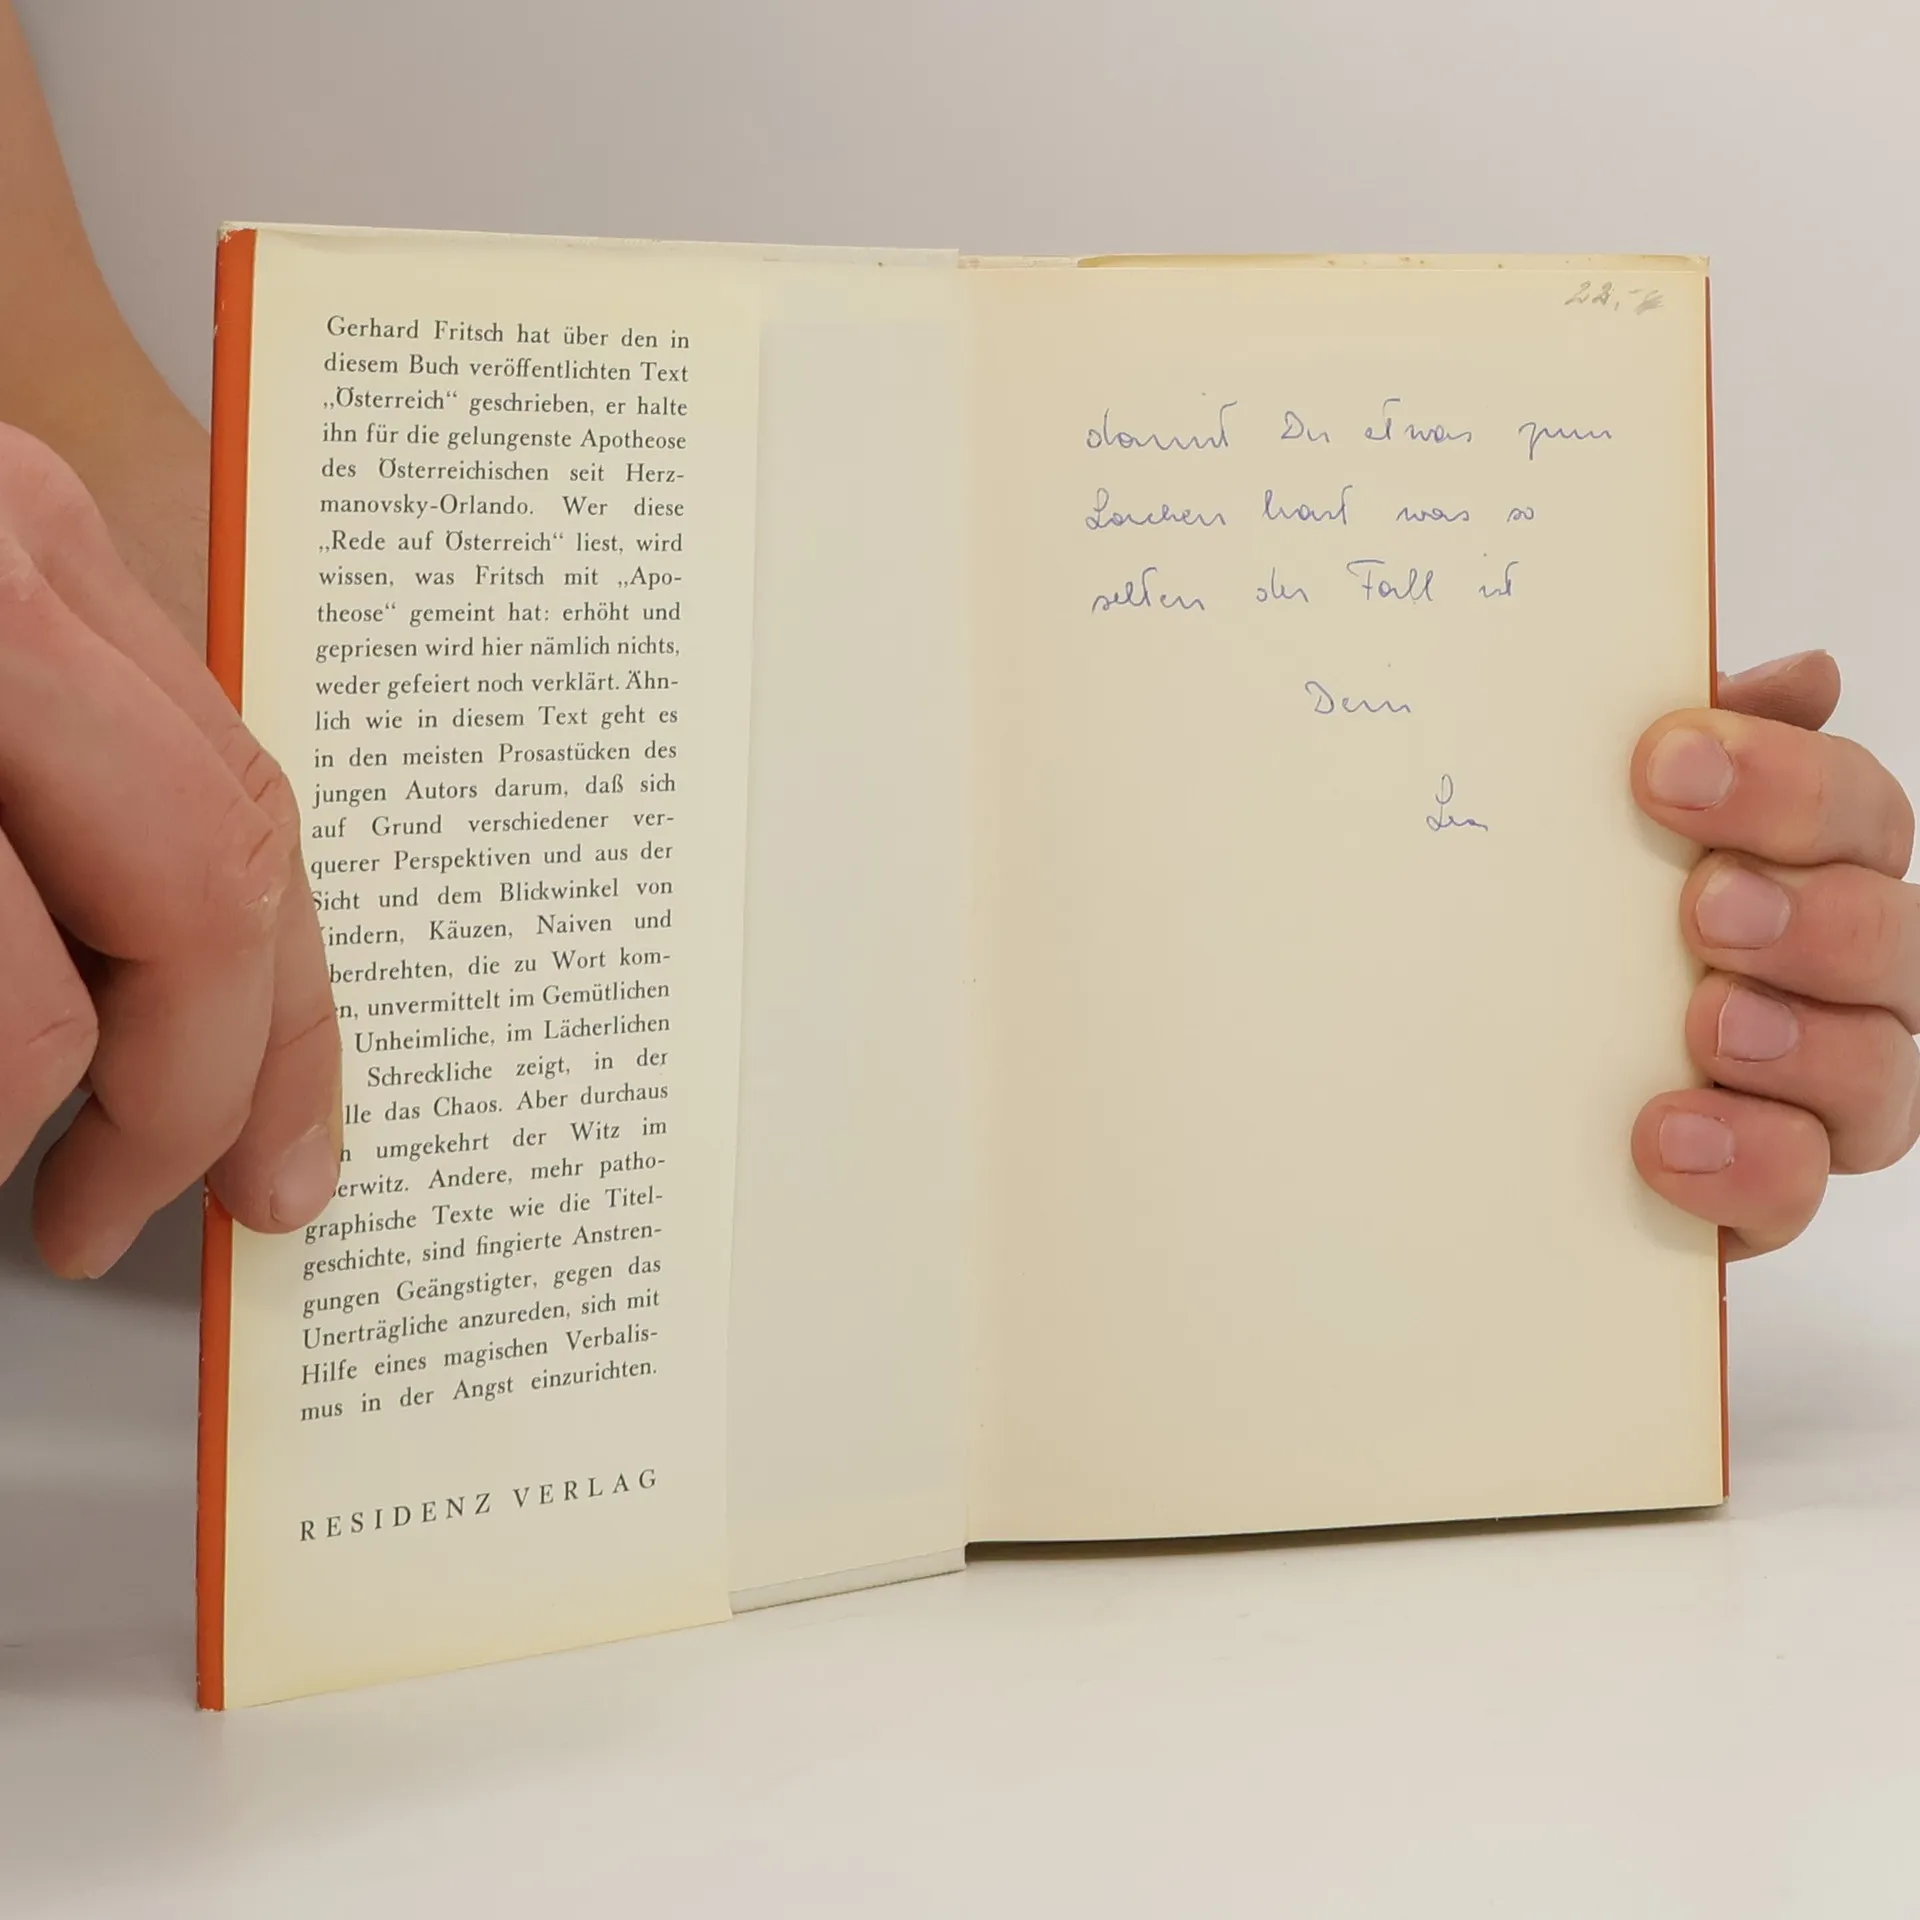 Gerhard Fritsch hat über den in
diesem Buch veröffentlichten Text
„Österreich“ geschrieben, er halte
ihn für die gelungenste Apotheose
des Österreichischen seit Herz-
manovsky-Orlando. Wer diese
„Rede auf Österreich“ liest, wird
wissen, was Fritsch mit „Apo-
theose“ gemeint hat: erhöht und
gepriesen wird hier nämlich nichts,
weder gefeiert noch verklärt. Ähn-
lich wie in diesem Text geht es
in den meisten Prosastücken des
jungen Autors darum, daß sich
auf Grund verschiedener ver-
querer Perspektiven und aus der
Sicht und dem Blickwinkel von
indern, Käuzen, Naiven und
berdrehten, die zu Wort kom-
n, unvermittelt im Gemütlichen
Unheimliche, im Lächerlichen
Schreckliche zeigt, in der
lle das Chaos. Aber durchaus
h umgekehrt der Witz im
erwitz. Andere, mehr patho-
graphische Texte wie die Titel-
geschichte, sind fingierte Anstren-
gungen Geängstigter, gegen das
Unerträgliche anzureden, sich mit
Hilfe eines magischen Verbalis-
mus in der Angst einzurichten.
RESIDENZ VERLAG
22,-
damit Du etwas zum
Lachen hast was so
selten der Fall ist
Dein